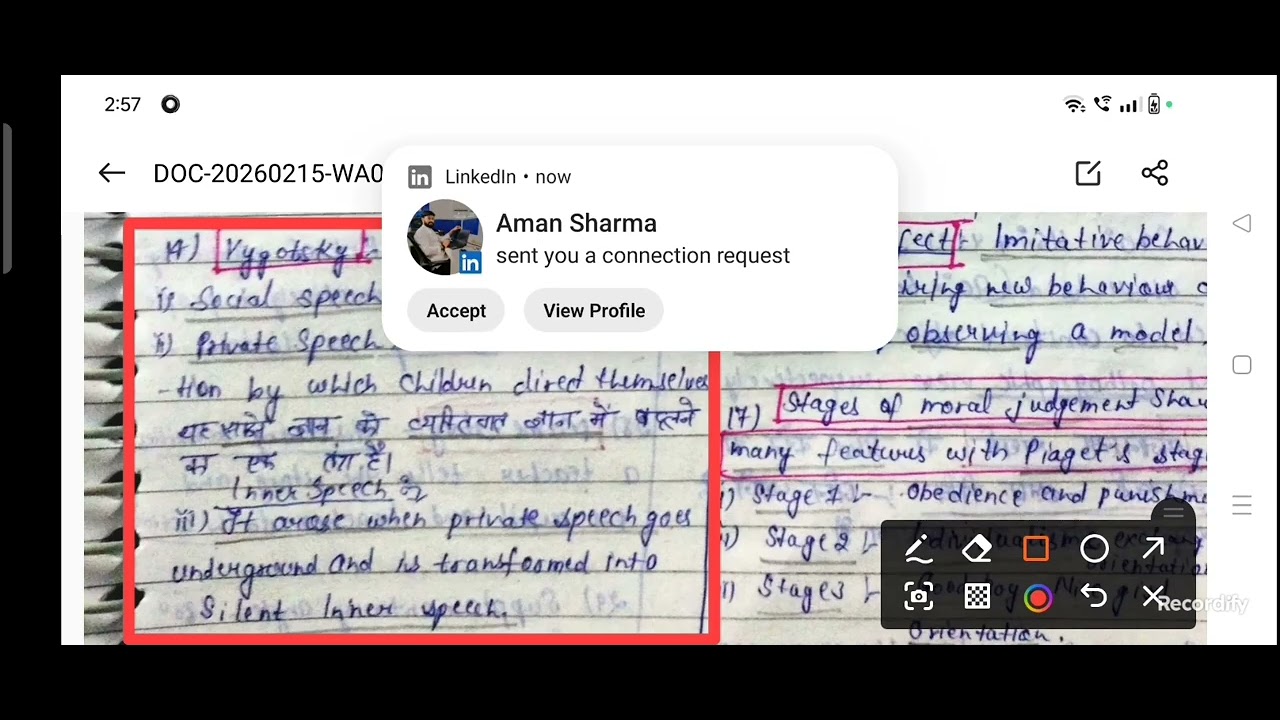 2:57
DOC-20260215-WA0
LinkedIn • now
Aman Sharma
sent you a connection request
Accept
View Profile
14) Vygotsky :-
i) Social speech
ii) Private Speech
-tion by which children direct themselves
ज्ञान को व्यक्तिगत ज्ञान में बदलने
का एक तंग है।
Inner Speech
iii) It arose when private speech goes
underground and is transformed into
Silent Inner speech.
fect :- Imitative behav
iring new behaviour
observing a model,
17) Stages of moral judgement Shar
many features with Piaget's stag
i) Stage 1 :- Obedience and punishme
i) Stage 2 :-
orientation
i) Stage3 :- Good boy Nice girl
Orientation.
Recordify